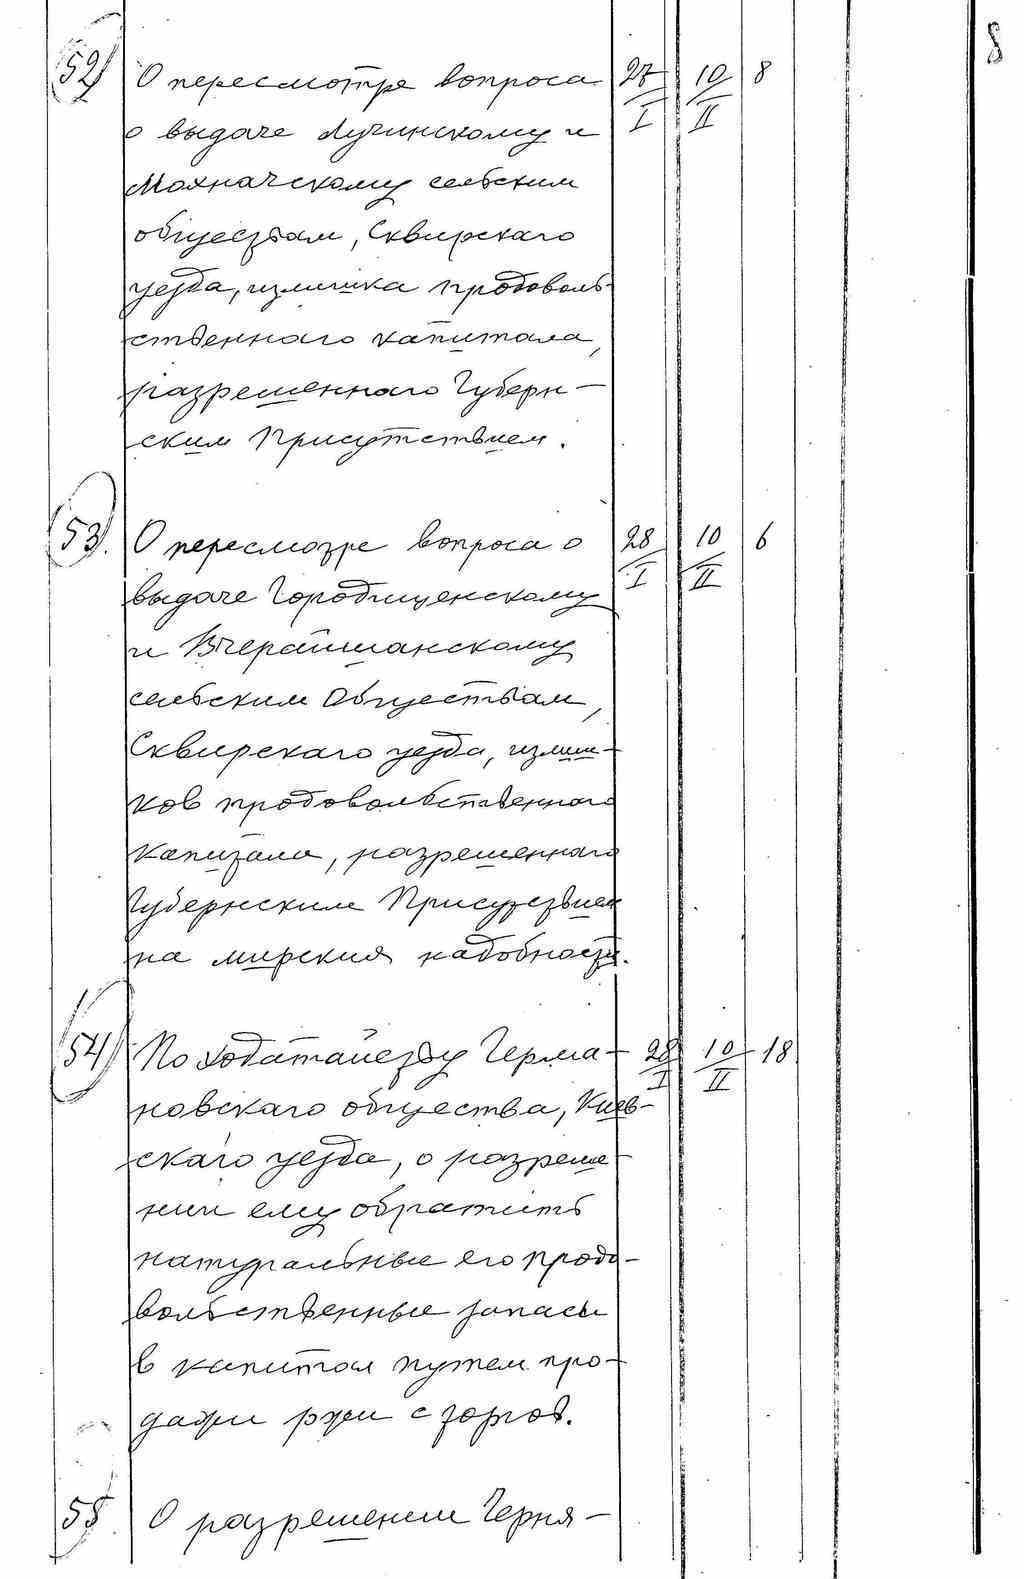 8
52) О пересмотре вопроса 27/I 10/II 8
о выдаче Лучинскому и
Мохначскому сельским
обществам, Сквирскаго
уезда, излишка продоволь-
ственнаго капитала,
разрешеннаго Губерн-
ским Присутствием.
53). О пересмотре вопроса о 28/I 10/II 6
выдаче Городищенскому
и Вчерайшанскому
сельским Обществам,
Сквирскаго уезда, излиш-
ков продовольственнаго
капитала, разрешеннаго
Губернским Присутствием
на мирския надобности.
54) По ходатайству Герма- 28/I 10/II 18
новскаго общества, Киев-
скаго уезда, о разреше-
нии ему обратить
натуральные его продо-
вольственные запасы
в капитал путем про-
дажи ржи с торгов.
55 О разрешении Черня-